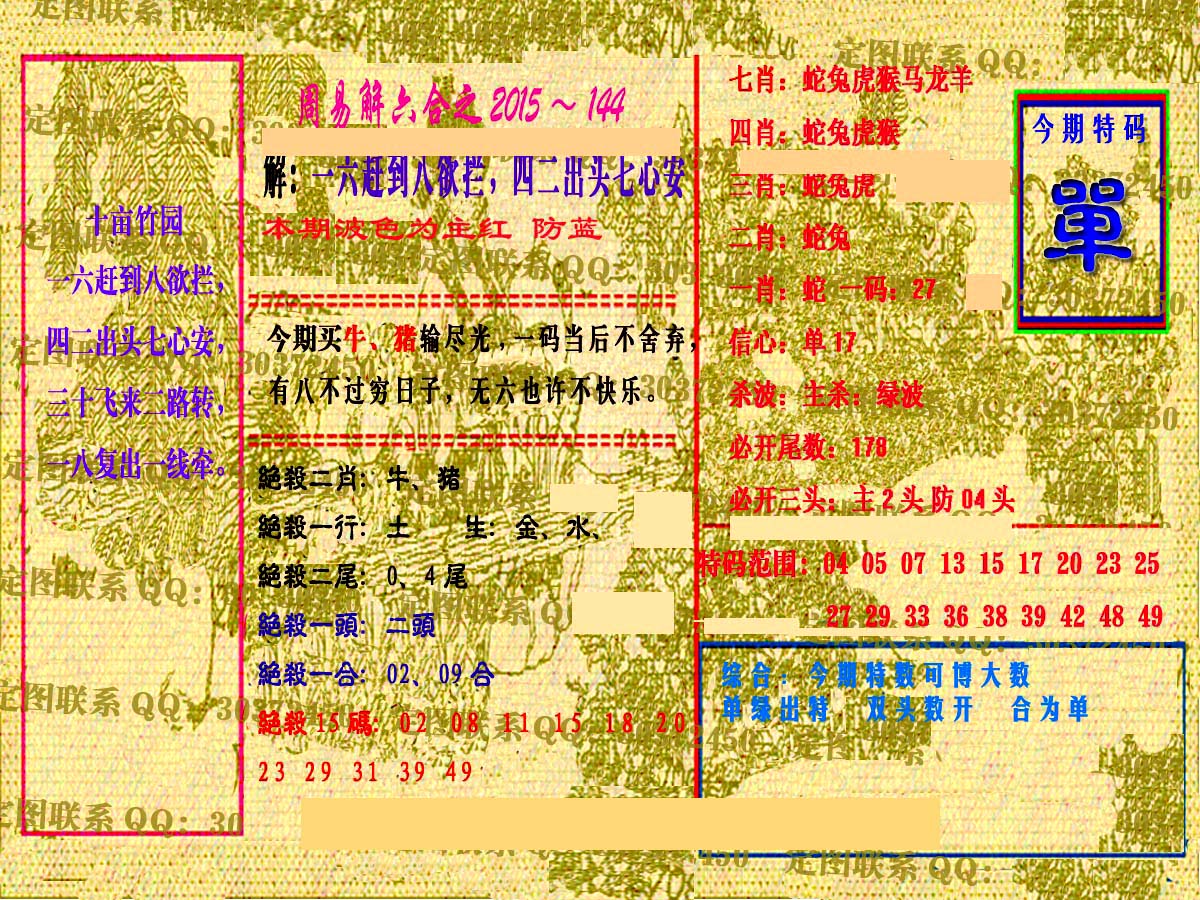 周易解六合之 2015～144
解：一六赶到八欲拦，四二出头七心安
本期波色为主红 防蓝
十亩竹园
一六赶到八欲拦，
四二出头七心安，
三十飞来二路转，
一八复出一线牵。
今期买牛、猪输尽光，一码当后不舍弃，
有八不过穷日子，无六也许不快乐。
絕殺二肖：牛、猪
絕殺一行：土 生：金、水、
絕殺二尾：0、4尾
絕殺一頭：二頭
絕殺一合：02、09合
絕殺15碼：02 08 11 15 18 20
23 29 31 39 49
七肖：蛇兔虎猴马龙羊
四肖：蛇兔虎猴
三肖：蛇兔虎
二肖：蛇兔
一肖：蛇 一码：27
信心：单17
杀波：主杀：绿波
必开尾数：178
必开三头：主2头防04头
今期特码
單
特码范围：04 05 07 13 15 17 20 23 25
27 29 33 36 38 39 42 48 49
综合：今期特数可博大数
单绿出特 双头数开 合为单
定图联系 QQ：